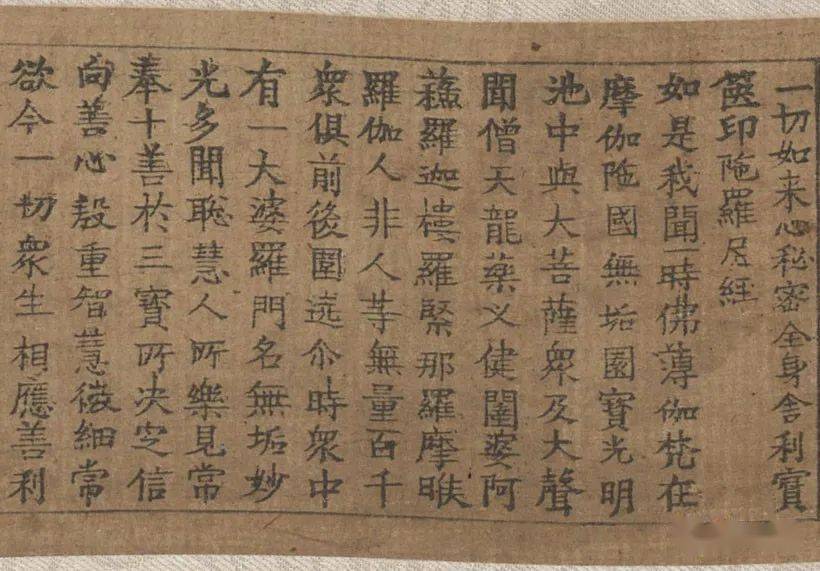 一切如来心秘密全身舍利寶
篋印陁羅尼経
如是我聞一時佛薄伽梵在
摩伽陁國無垢園寶光明
池中與大菩薩衆及大聲
聞僧天龍藥义健闥婆阿
蘓羅迦樓羅緊那羅摩睺
羅伽人非人䓁無量百千
衆俱前後圍遶尒時衆中
有一大婆羅門名無垢妙
光多聞聡慧人所樂見常
奉十善於三寶所决定信
向善心殷重智慧微細常
欲令一切衆生相應善利